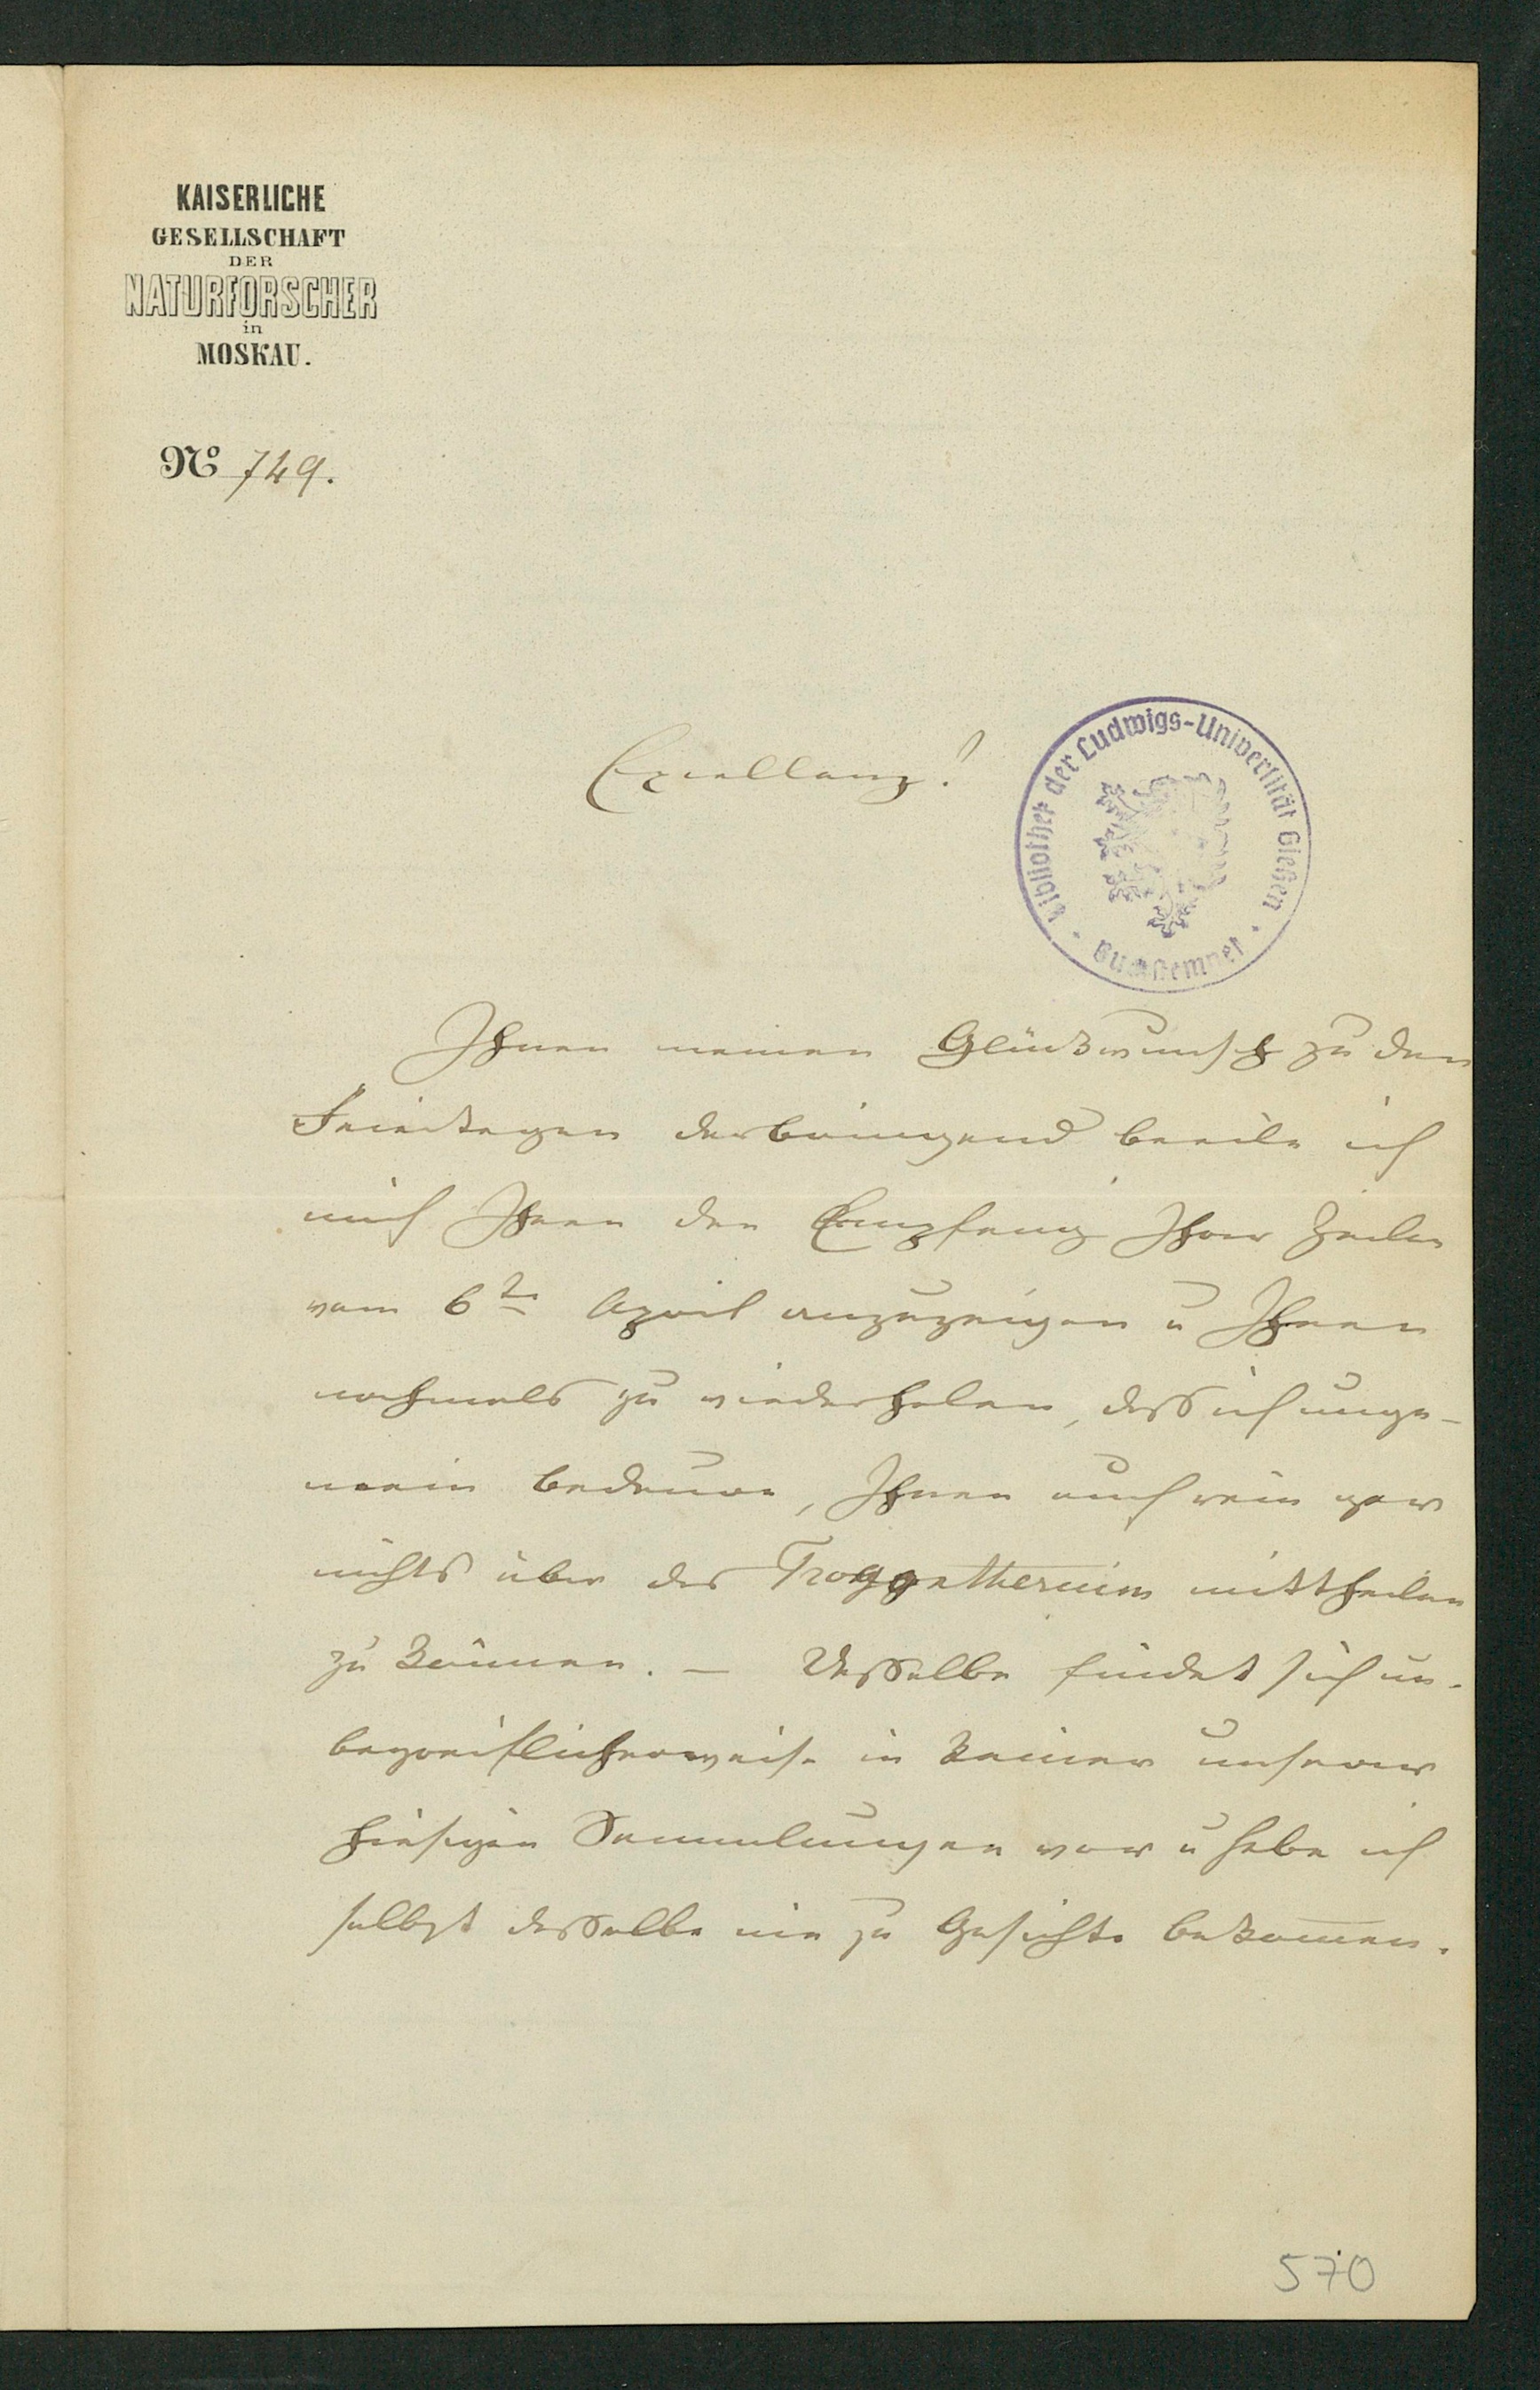 KAISERLICHE
GESELLSCHAFT
DER
NATURFORSCHER
in
MOSKAU.
No 749.
Excellenz!
Bibliothek der Ludwigs-Universität Gießen
Buchstempel
Ihnen meinen Glückwunsch zu den
Feiertagen darbringend beeile ich
mich Ihnen den Empfang Ihrer Zeilen
vom 6ten April anzuzeigen u Ihnen
nochmals zu wiederholen, daß ich unge-
mein bedaure, Ihnen auch rein gar
nichts über das Troggontherium mittheilen
zu können. — Dasselbe findet sich un-
begreiflicherweise in keiner unserer
hiesigen Sammlungen vor u habe ich
selbst dasselbe nie zu Gesichte bekommen.
570